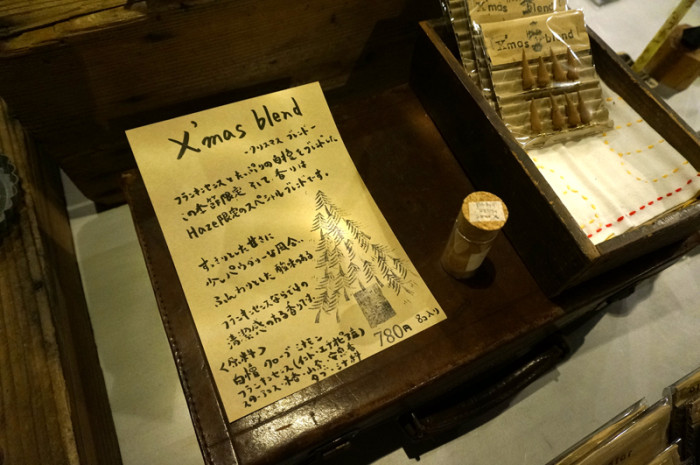 X'mas blend
-クリスマス ブレンド-
フランキンセンスとたっぷりの白檀をブレンドした
この季節限定 そして 香りは
Haze限定のスペシャルブレンドです。
すっきりとした甘さに
少しパウダリーな風合い、
ふんわりとした
フランキンセンスならではの
清涼感のある香りです。
780円 8コ入り
〈原料〉
白檀 クローブ シナモン
フランキンセンス
X'mas Blend
X'mas blend